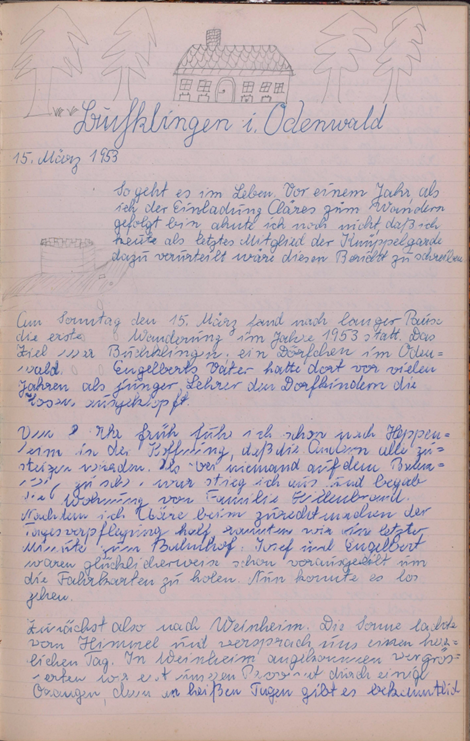 Buchklingen i. Odenwald
15. März 1953
So geht es im Leben. Vor einem Jahr, als
ich der Einladung Cläres zum Wandern
gefolgt bin ahnte ich noch nicht, daß ich
heute als letztes Mitglied der Knüppelgarde
dazu verurteilt wäre diesen Bericht zu schreiben.
Am Sonntag den 15. März fand nach langer Pause
die erste Wanderung im Jahre 1953 statt. Das
Ziel war Buchklingen, ein Dörfchen im Oden-
wald. Engelberts Vater hatte dort vor vielen
Jahren als junger Lehrer den Dorfkindern die
Hosen ausgeklopft.
Um 8 Uhr früh fuhr ich schon nach Heppen-
heim in der Hoffnung, daß die Andern alle zu-
steigen würden. Als aber niemand auf dem Bahn-
zu sehen war stieg ich aus und begab
Wohnung von Familie Hillenbrand.
Nachdem ich Cläre beim zurechtmachen der
Tagesverpflegung half rannten wir in letzter
Minute zum Bahnhof. Josef und Engelbert
waren glücklicherweise schon vorausgeeilt um
die Fahrkarten zu holen. Nun konnte es los
gehen.
Zunächst also nach Weinheim. Die Sonne lachte
vom Himmel und versprach uns einen herr-
lichen Tag. In Weinheim angekommen vergrös-
serten wir erst unseren Proviant durch einige
Orangen, denn an heißen Tagen gibt es bekanntlich